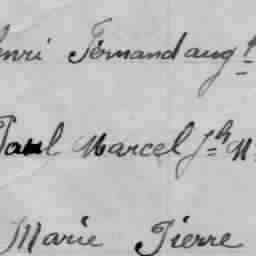 enri Fernand aug
Paul Marcel Jh M
Marie Pierre